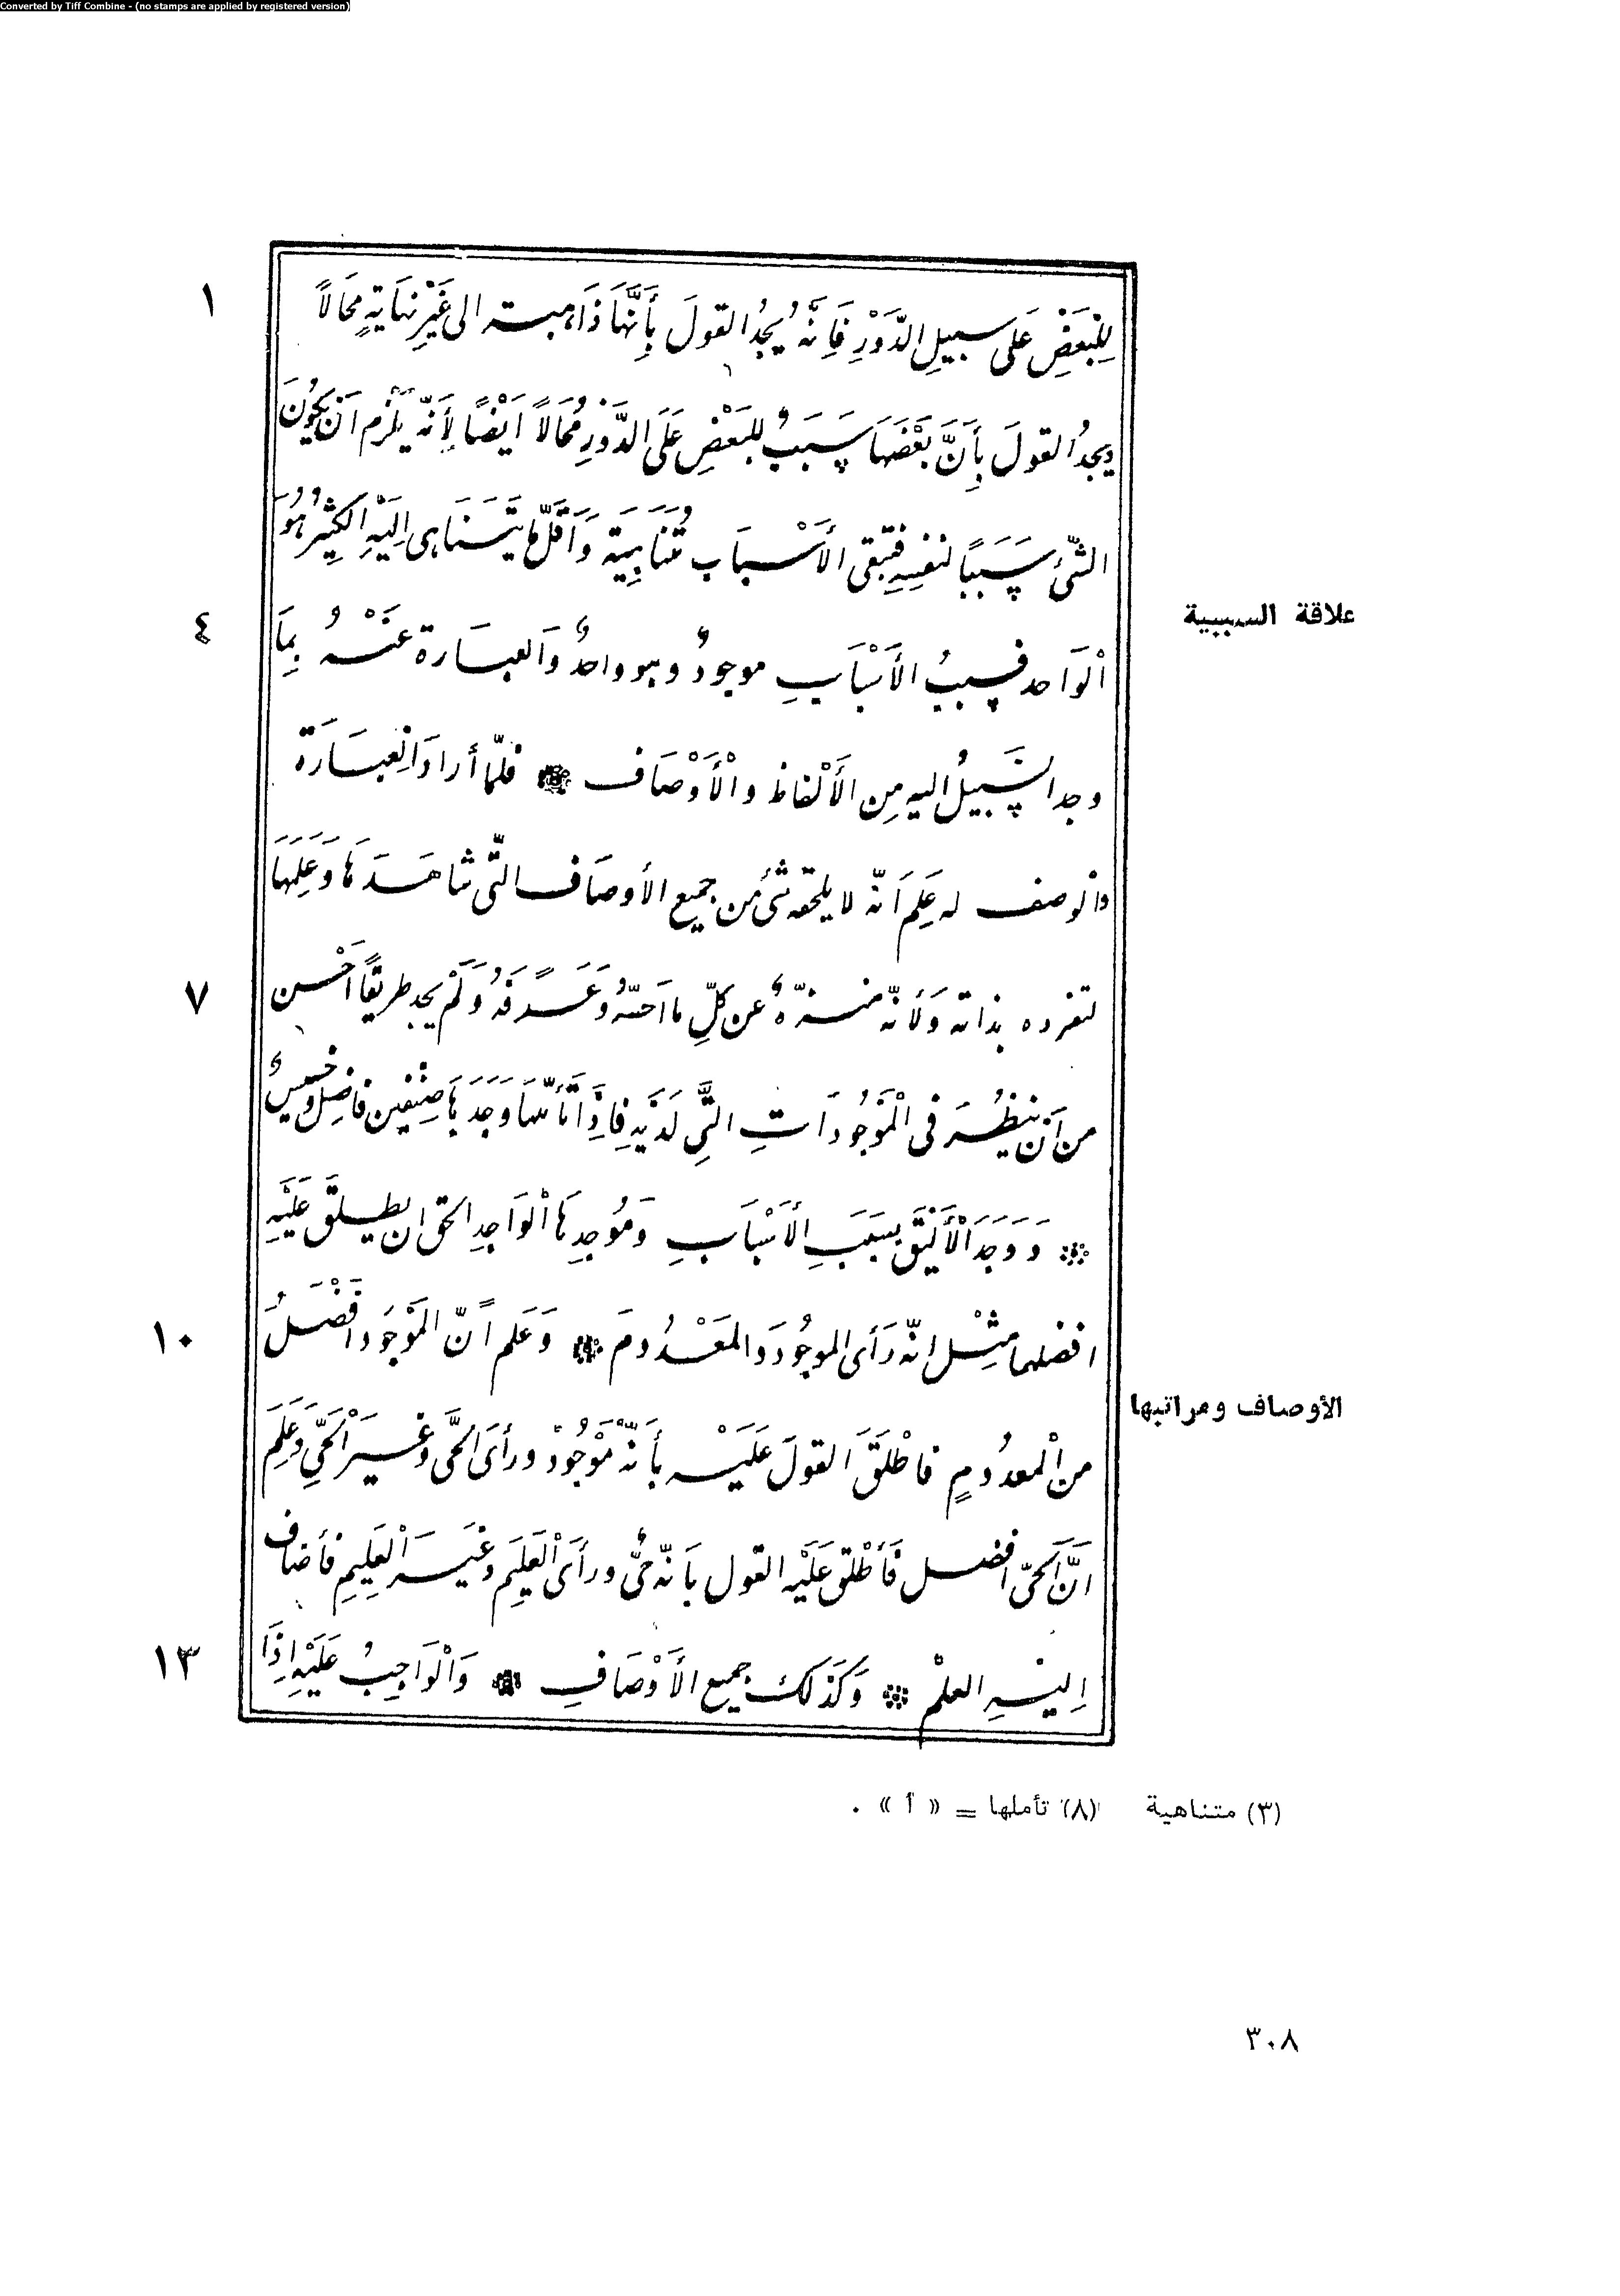 Converted by Tiff Combine - (no stamps are applied by registered version)
١
لِلْبَعْضِ عَلى سبيلِ الدَّوْرِ فَإِنَّه يُجِدُ القولَ بِأَنَّهَا ذَاهبة الى غَيْرِ نِهَايَةٍ مُحَالاً
ويجدُ القولَ بِأَنَّ بَعْضَهَا سَبَبٌ لِلبَعْضِ عَلَى الدَّوْرِ مُحَالاً اَيْضًا لِأَنّه يَلْزم اَنْ يَكُونَ
الشّئُ سَبَبًا لنفسِهِ فَتَبْقى الأَسْبَاب مُتَنَاهِيَة وَاَقَلّ مَا يَتَنَاهى اِلَيْهِ الكَثِيْرُ هُوَ
علاقة السببية
٤
اْلوَاحد فسببُ الأَسْبَابِ موجودٌ وهو واحدٌ وَالعِبَارة عَنْهُ بِمَا
وجد السَّبِيلُ اليه مِن الأَلْفاظ واْلأَوْصَاف ۞ فلمّا أرادَ اْلعِبَارَةَ
واْلوصف له عَلِمَ اَنّه لا يلحقه شئ من جميع الأوصَاف التّى شَاهَدَهَا وَعَلِمَهَا
٧
لتفرده بذاته وَلأَنّه منزّهٌ عن كلِّ ما اَحَسَّهُ وَعَرَفَهُ وَلَمْ يجد طريقًا اَحْسن
من اَنْ ينظُرَ فى اْلمَوْجُودَاتِ التَّى لَدَيْهِ فَإِذَا تَأَمَّلَهَا وَجَدَهَا صِنْفين فاضِل وخَسِيسٌ
۞ وَوَجَدَ اْلأَلْيَقَ بِسَبَبِ الأَسْبَابِ وَمُوْجِدِهَا اْلوَاحِدِ الحق ان يطلق عَلَيْهِ
١٠
افضلهما مثْل اِنّه رَأى الموجُودَ والمَعْدُومَ ۞ وَعَلم اَنّ المَوْجُودَ اَفْضَلُ
الأوصاف ومراتبها
من اْلمعدُومِ فاطْلَقَ القولَ عَلَيْه بِأَنَّهُ مَوْجُودٌ ورأىَ الحَىَّ وغيرَ اْلحَىِّ وَعَلِمَ
انَّ اَلحَىّ افضل فَأطْلق عَلَيْه القول بِاَنّه حَىٌّ ورأىَ اْلعَلِيمَ وغيرَ اْلعَلِيمِ فأضاف
١٣
اِليْهِ العلْم ۞ وَكَذلك جميع الأَوْصَافِ ۞ وَاْلوَاجِبُ عَلَيْهِ اِذَا
(٣) متناهية (٨) تأملها = « أ » .
٣٠٨